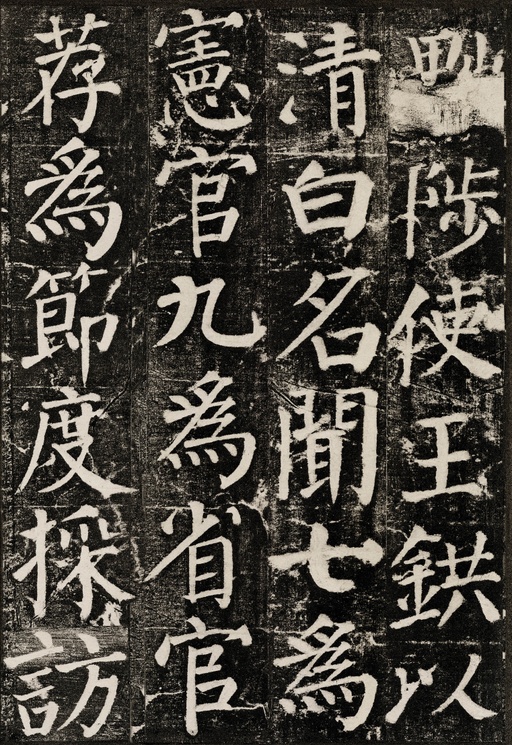 黜陟使王鉷以
清白名聞七爲
憲官九爲省官
荐爲節度採訪